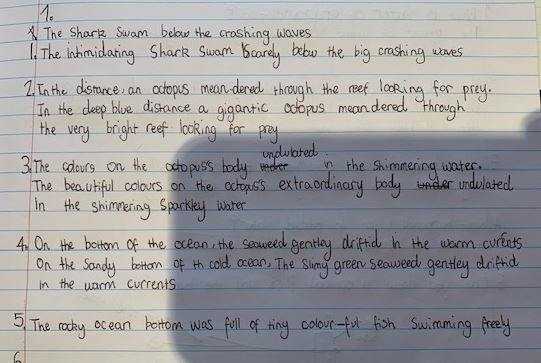 1.
The Shark Swam below the crashing waves
1. The intimidating Shark Swam Scarely below the big crashing waves
2. In the distance, an octopus mean-dered through the reef looking for prey.
In the deep blue distance a gigantic octopus meandered through
the very bright reef looking for prey
undulated
3. The colours on the octopus's body under in the shimmering water.
The beautiful colours on the octopus's extraordinary body under undulated
In the shimmering Sparkley water
4. On the bottom of the ocean, the seaweed gentley driftid in the warm curents
On the Sandy bottom of th cold ocean, The Slimy green Seaweed gentley driftid
in the warm currents
5. The rocky ocean bottom was full of tiny colour-ful fish Swimming freely
6